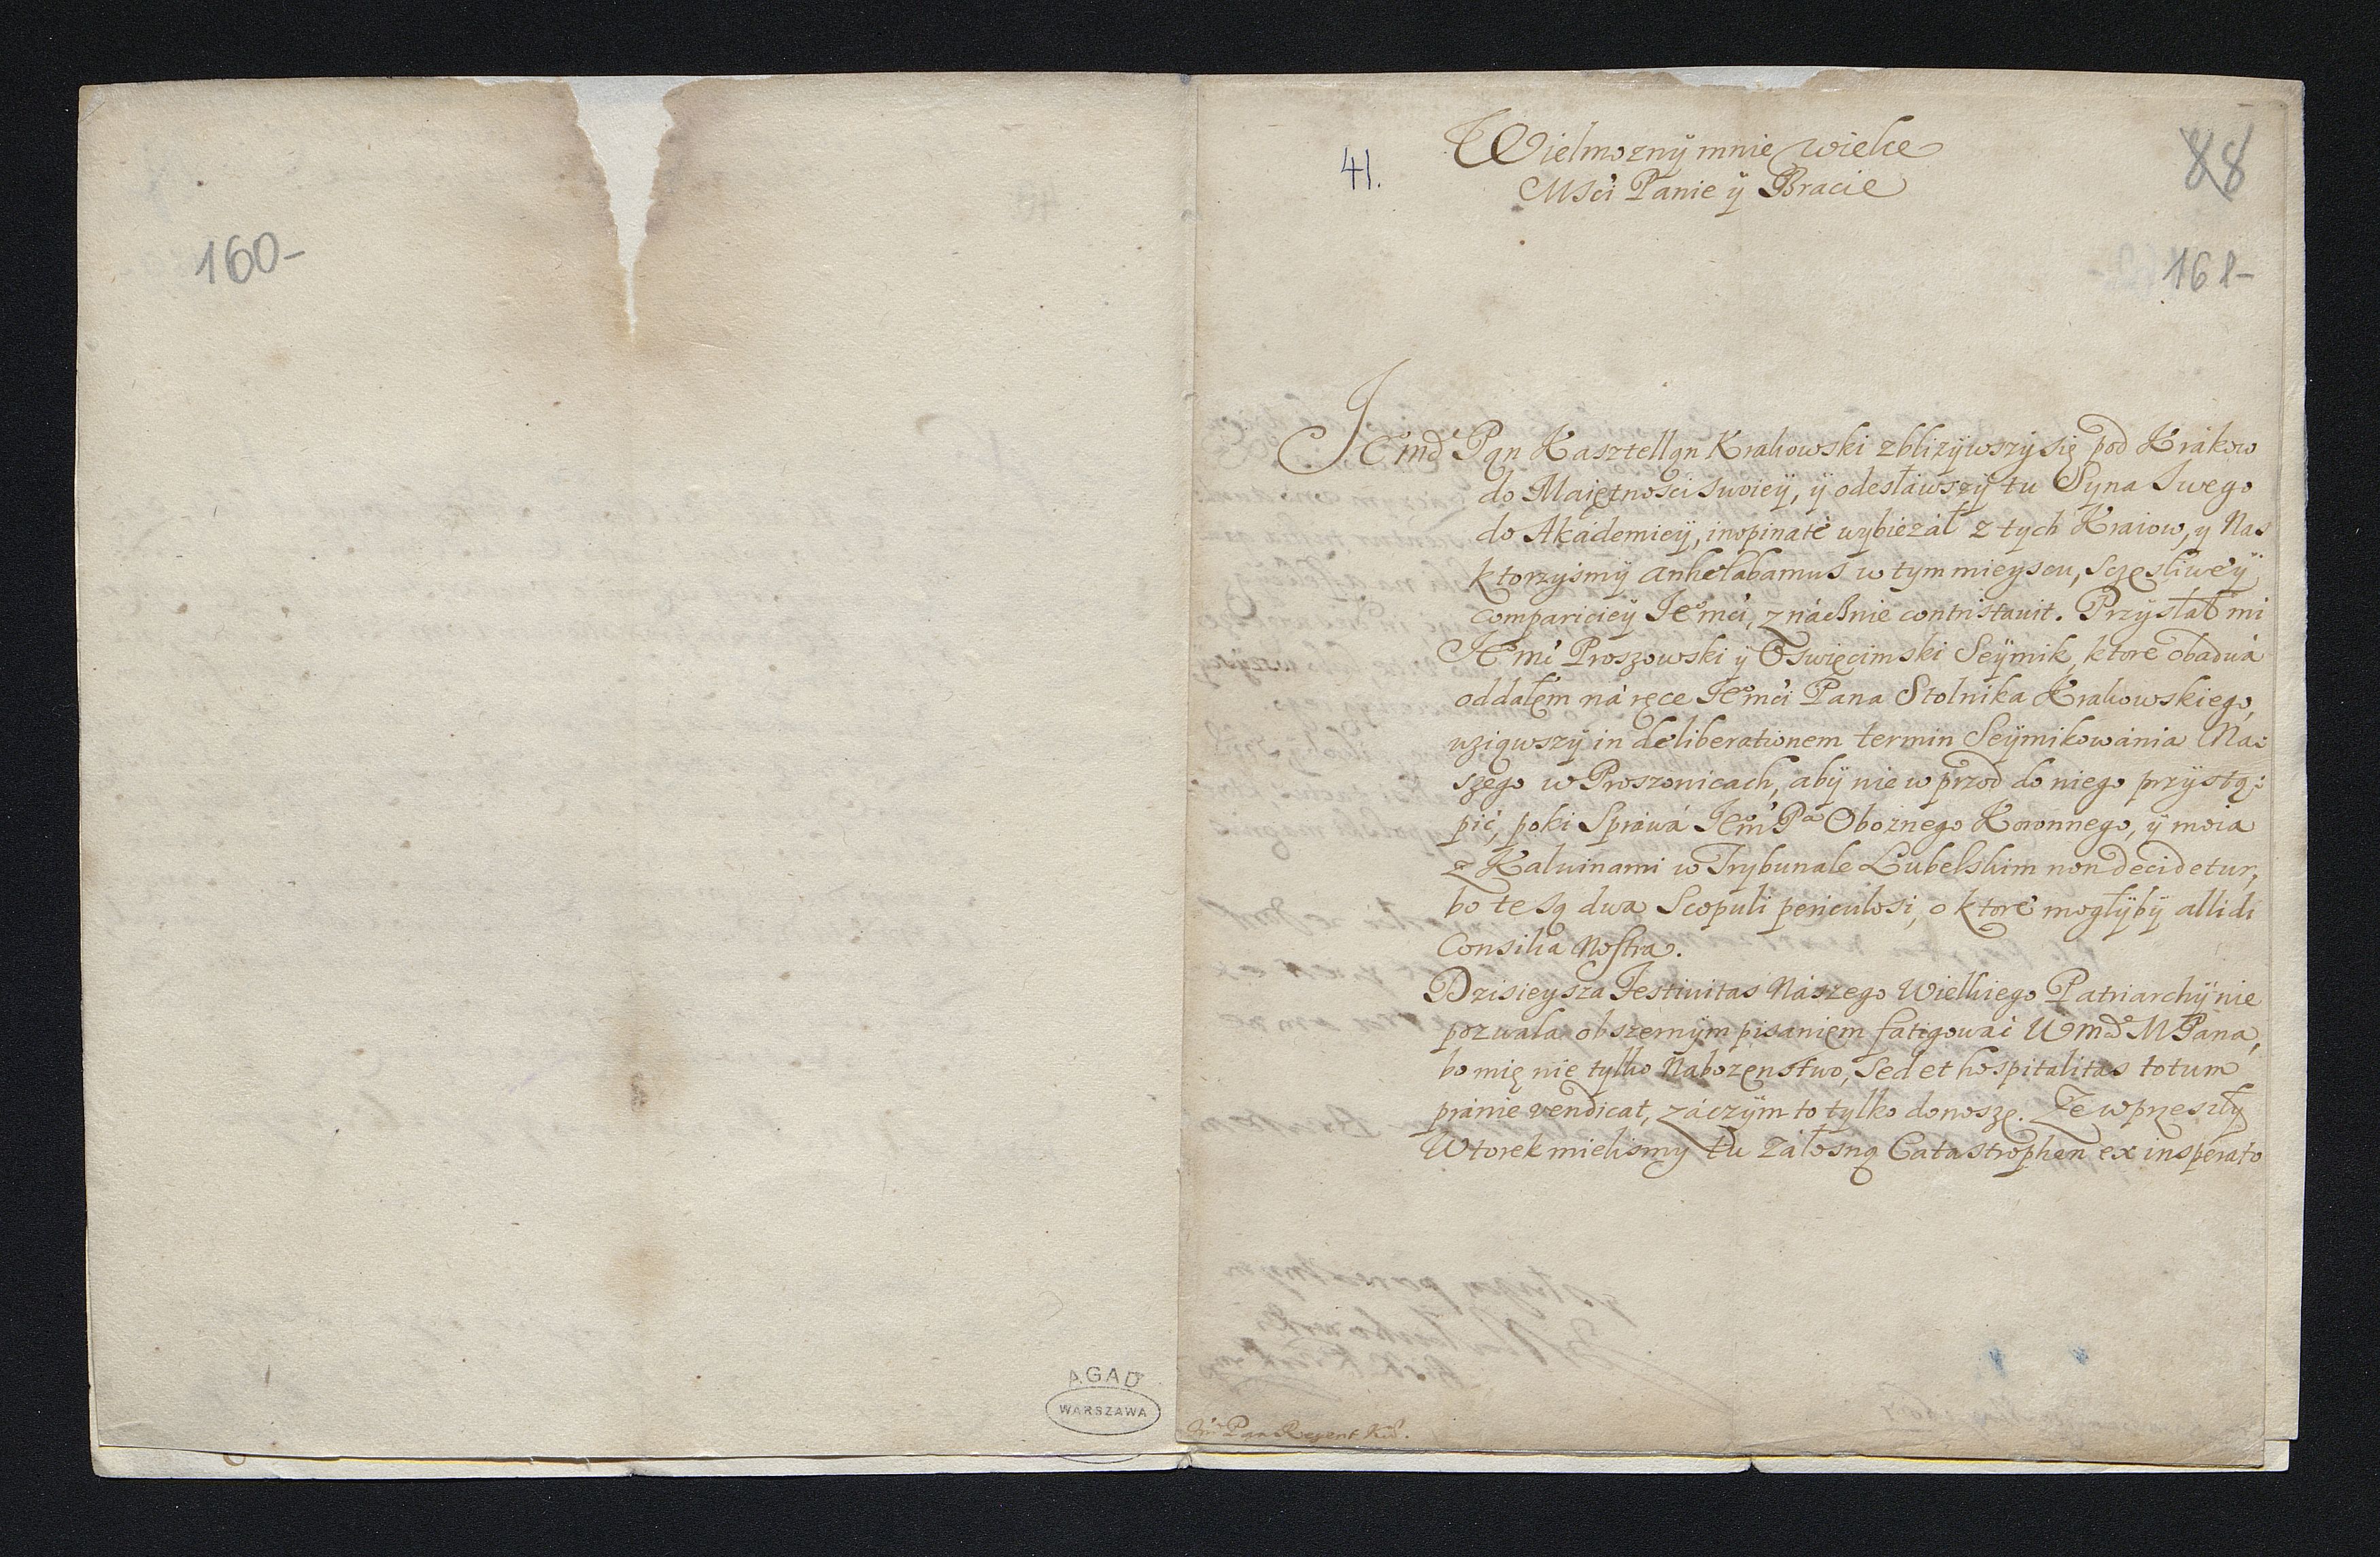 160-
AGAD
WARSZAWA
41.
88
161-
Wielmozny mnie wielce
Msci Panie ÿ Bracie
JEmć Pąn Kasztelląn Krakowski zbliżÿwszÿ się pod Kráków
do Maiętnosci swoieÿ, ÿ odesławszÿ tu Syna Swego
do Akádemieÿ, inopinatè wybieżáł z tych Kraiow, y Nas
ktorzysmÿ anhelabamus w tym mieyscu, sczęsliweÿ
compariciey Ieomci, znácżnie contristauit. Przysłał mi
IEmć Proszowski ÿ Oswięcimski Seÿmik, ktore obadwá
oddałęm ná ręce Ieomci Pana Stolnika Krakowskiego,
wziąwszÿ in deliberationem termin Seÿmikowánia Ná:
szego w Proszowicach, abÿ nie w przod do niego przystą:
pić, poki Spráwá IEm Pa Oboznego Koronnego, ÿ moia
z Kalwinami w Trybunale Lubelskim non decidetur,
bo te są dwa Scopuli periculosi, o ktore mogłÿbÿ allidi
Consilia Nostra.
Dzisieysza Festiuitas Nászego Wielkiego Patriarchÿ nie
pozwala obszernÿm pisánięm fatigowáć WMci MPana,
bo mię nie tylko Nabozęnstwo, Sed et hospitalitas totum
pránie vendicat, záczÿm to tylko donoszę. Ze w przeszłÿ
Wtorek mielismy tu załosną Catastrophen ex insperato
Jm Pan Regent Kor.